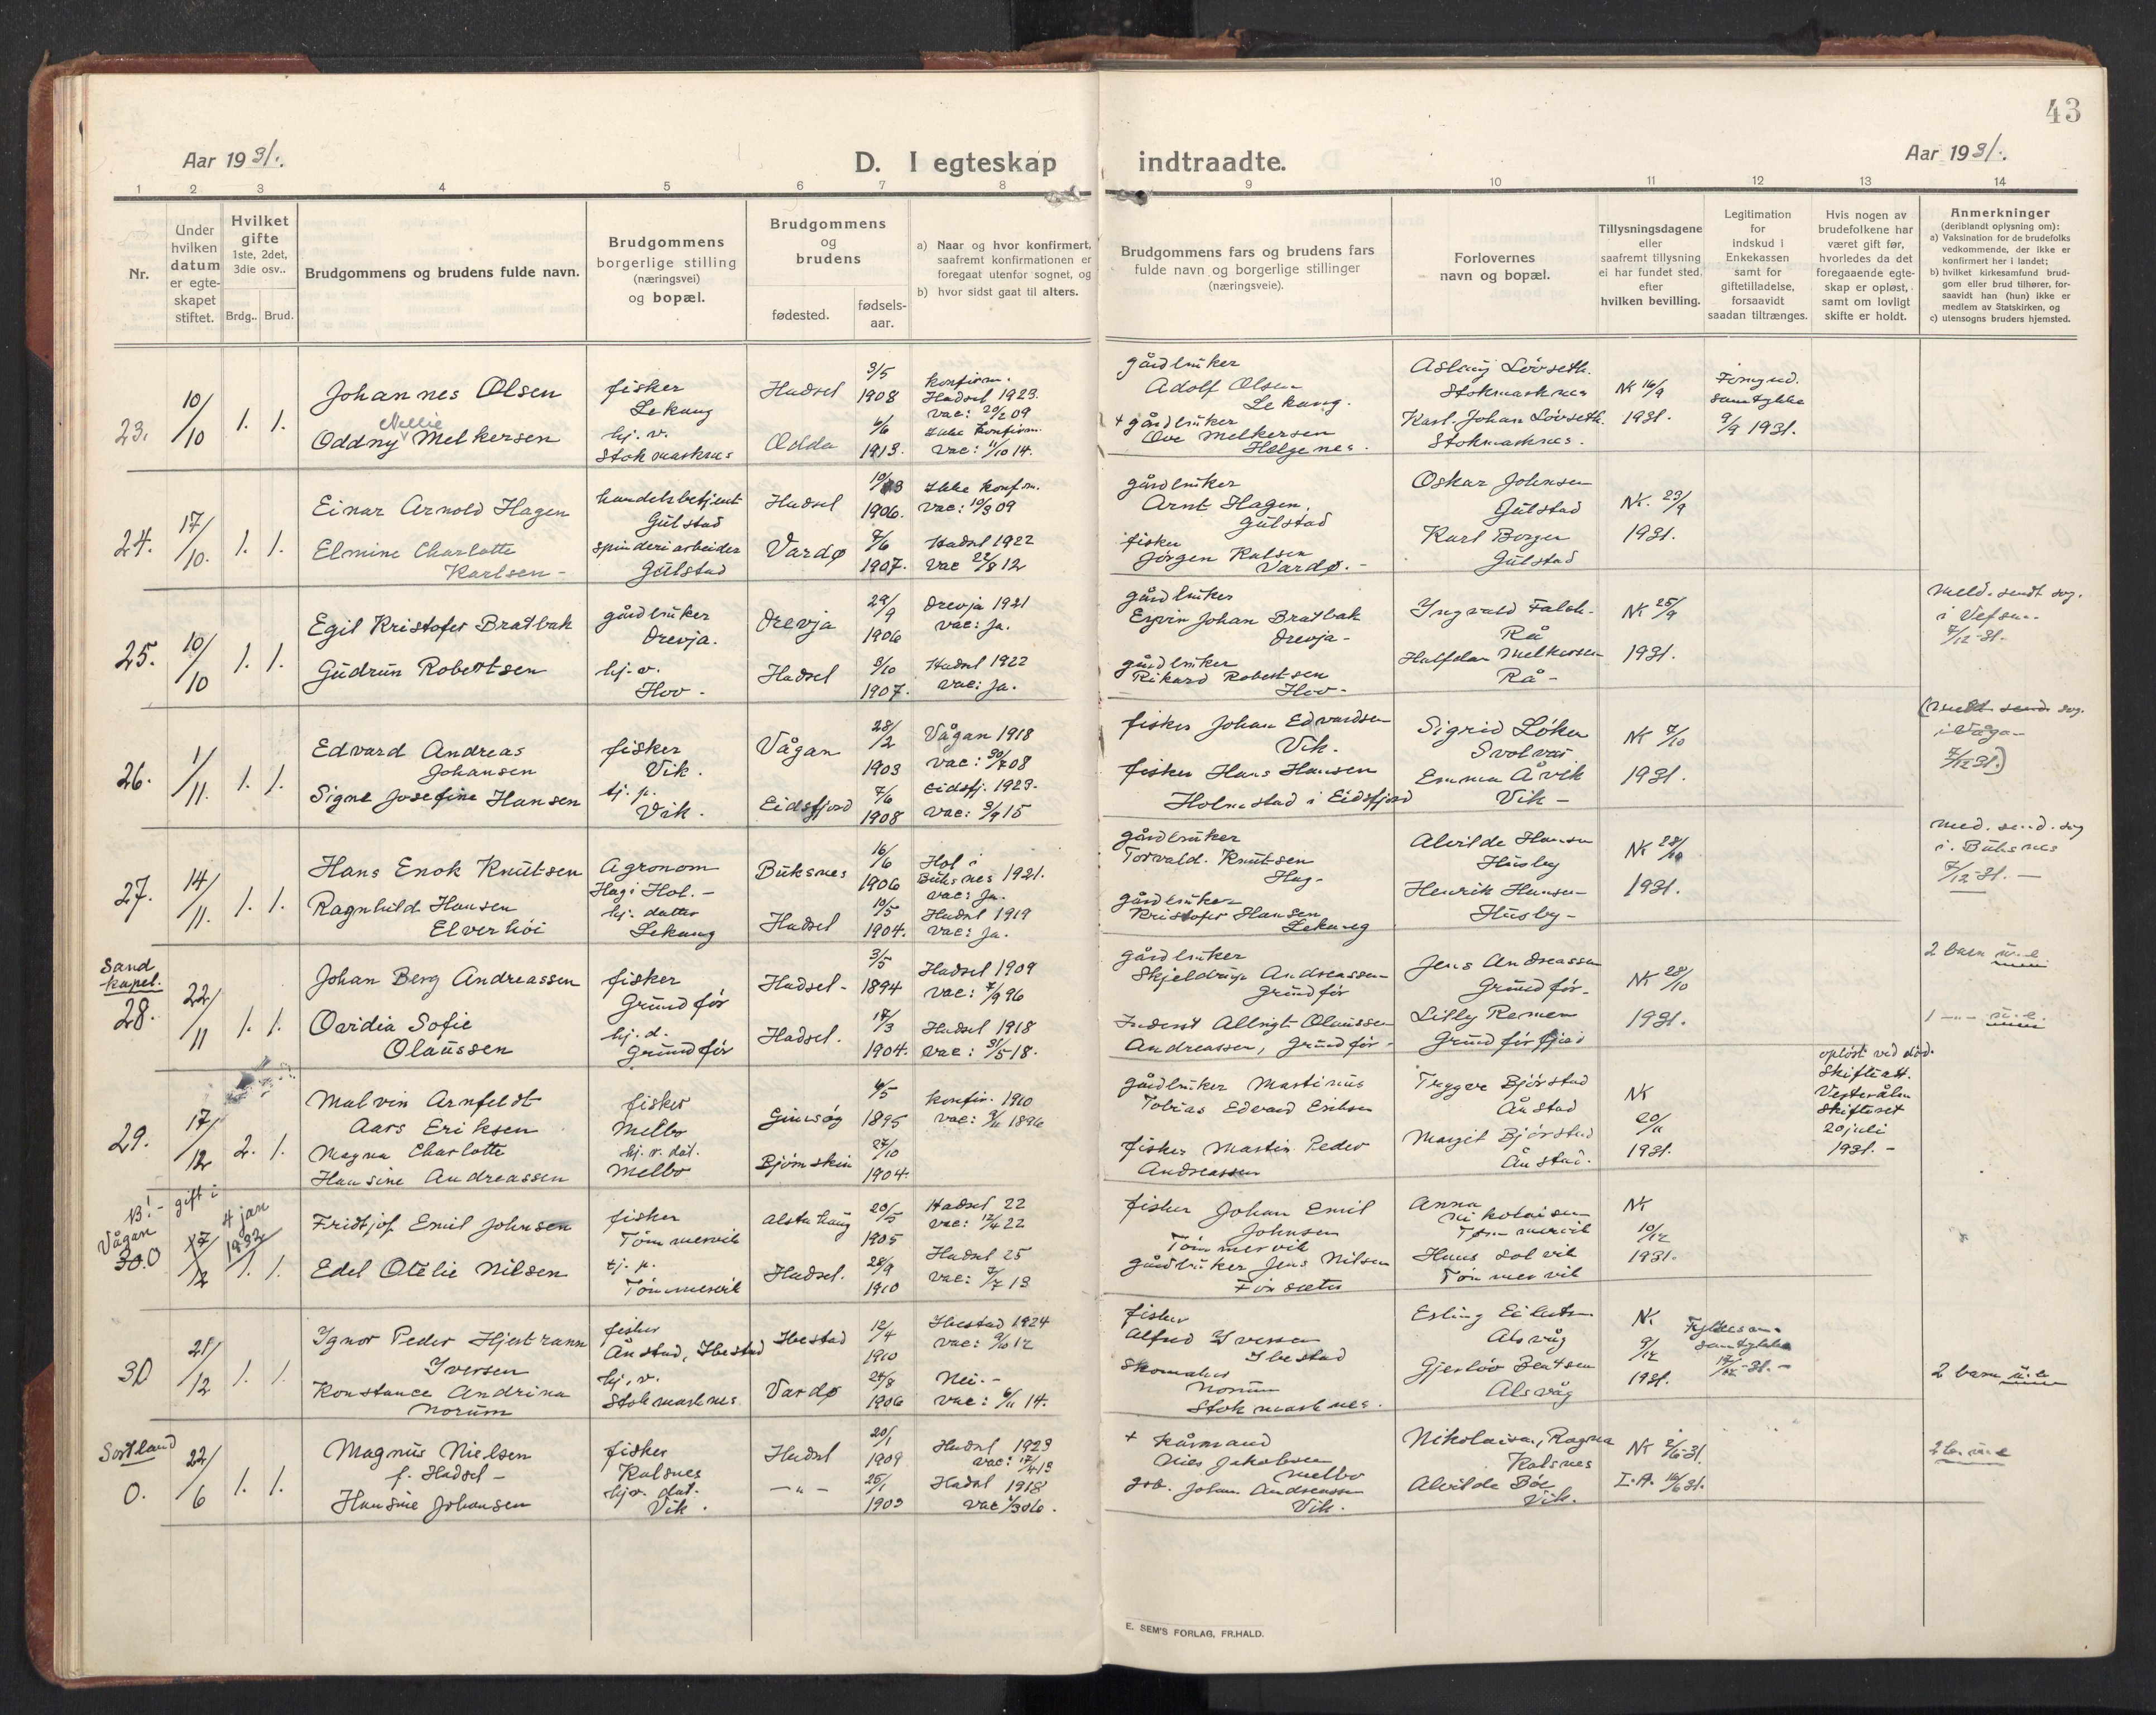 43
Aar 1931.
D. I egteskap indtraadte.
Aar 1931.
1 2 3 4 5 6 7 8 9 10 11 12 13 14
Nr.
Under hvilken datum er egteskapet stiftet.
Hvilket gifte 1ste, 2det, 3die osv..
Brdg.. Brud.
Brudgommens og brudens fulde navn.
Brudgommens borgerlige stilling (næringsvei) og bopæl.
Brudgommens og brudens
fødested.
fødselsaar.
a) Naar og hvor konfirmert, saafremt konfirmationen er foregaat utenfor sognet, og
b) hvor sidst gaat til alters.
Brudgommens fars og brudens fars fulde navn og borgerlige stillinger (næringsveie).
Forlovernes navn og bopæl.
Tillysningsdagene eller saafremt tillysning ei har fundet sted, efter hvilken bevilling.
Legitimation for indskud i Enkekassen samt for giftetilladelse, forsaavidt saadan tiltrænges.
Hvis nogen av brudefolkene har været gift før, hvorledes da det foregaaende egteskap er opløst, samt om lovligt skifte er holdt.
Anmerkninger (deriblandt oplysning om):
a) Vaksination for de brudefolks vedkommende, der ikke er konfirmert her i landet;
b) hvilket kirkesamfund brudgom eller brud tilhører, forsaavidt han (hun) ikke er medlem av Statskirken, og
c) utensogns bruders hjemsted.
23. 10/10 1. 1.
Johannes Olsen
fisker
Lekang
Hadsel
3/5 1908
konfirm. Hadsel 1923.
vac: 20/2 09
gårdbruker
Adolf Olsen
Lekang.
Aslaug Lövseth.
Stokmarknes
NK 16/9 1931.
samtykke
9/9 1931.
Oddny Nellie Melkersen
hj. v.
Stokmarknes
Odda
1913.
Ikke konfirm.
vac: 11/10 14.
+ gårdbruker
Ove Melkersen
Helgenes.
Karl Johan Lövseth.
Stokmarknes.
24. 17/10. 1. 1.
Einar Arnold Hagen
handelsbetjent
Gulstad
Hadsel
1906.
Ikke konfirm.
vac: 10/9 09
gårdbruker
Arnt Hagen.
Gulstad
Oskar Johnsen
Gulstad
NK. 23/9 1931.
Elmine Charlotte Karlsen -
spinderiarbeider
Gulstad
Vardø
7/6 1907.
Hadsel 1922
vac 22/8 12
fisker
Jørgen Kalsen
Vardø. -
Karl Borgen
Gulstad
25. 10/10 1. 1.
Egil Kristofer Bratbak
gårdbruker
Drevja.
Drevja
29/9 1906
Drevja 1921
vac: ja.
gårdbruker
Johan Bratbak
Drevja -
Ingvald Falch.
Rå
NK 25/9 1931.
meld. sendt sog.
i Vefsn.
7/12-31.
Gudrun Robertsen
hj. v.
Hov -
Hadsel
9/10 1907.
Hadsel 1922
vac: ja.
gårdbruker
Rikard Robertsen
Hov -
Halfdan Melkersen
Rå -
26. 1/11. 1. 1.
Edvard Andreas Johansen
fisker
Vik.
Vågan
28/2 1903
Vågan 1918
vac: 30/7 08
fisker Johan Edvardsen
Vik.
Sigrid Löken
Svolvær
NK 7/10 1931.
(meld. send. sog.
i Våga-
7/12 31.)
Signe Josefine Hansen
tj. p.
Vik.
Eidsfjord
7/6 1908
Eidsfj. 1923.
vac: 9/9 15
fisker Hans Hansen
Holmstad i Eidsfjord
Emma Åvik
Vik -
27. 14/11. 1. 1.
Hans Enok Knutsen
Agronom
Hag i Hol. -
Buksnes
16/6 1906
Hol i Buksnes 1921.
vac: ja.
gårdbruker
Torvald. Knutsen
Hag -
Alvilde Hansen
Husby
NK 28/10 1931.
med. send. sog
i. Buksnes
7/12-31. -
Ragnhild Hansen Elverhöi
hj. datter
Lekang
Hadsel
10/5 1904.
Hadsel 1919
vac: ja.
gårdbruker
Kristofer Hansen
Lekang
Henrik Hansen
Husby -
Sand kapel.
28. 22/11 1. 1.
Johan Berg Andreassen
fisker
Grundför
Hadsel -
3/5 1894
Hadsel 1909
vac: 7/9 96
gårdbruker
Andreassen
Grundför
Jens Andreassen
Grundför -
NK 28/10 1931.
2 barn u.e.
Ovidia Sofie Olaussen
hj. d.
Grundför
Hadsel.
17/3 1904.
Hadsel 1918
vac: 31/5 18.
Olaussen
Andreassen, Grundför -
Lilly Remen
Grundförfjord
1 -"- u.e.
29. 17/12 2. 1.
Malvin Arnfeldt Aars Eriksen
fisker
Melbo
Gimsøy
4/5 1895
konfir. 1910
vac: 9/11 1896
gårdbruker Martinus
Tobias Edvard Eriksen
Trygve Bjørstad
Ånstad
NK 20/11 1931.
opløst ved död.
Skifteatt.
Vesterålen
skifteret
20 juli
1931. -
Magna Charlotte Hansine Andreassen
hj. v. dat.
Melbo
Bjørnskin
27/10 1904.
fisker Martin Peder
Andreassen
Margit Bjørstad
Ånstad.
NB! - gift i Vågan 4 jan 1932
30. 0 17/12 1. 1.
Fridtjof Emil Johnsen
fisker
Tömmervik
Alstahaug
20/5 1905
Hadsel 22
vac: 12/4 22
fisker Johan Emil
Johnsen
Tömmervik
Anna
Nikolaisen
Tømmervik
NK 10/12 1931.
Edel Otelie Nilsen
tj. p.
Tömmervik
Hadsel.
28/9 1910
Hadsel 25
vac: 7/7 13
gårdbruker Jens Nilsen
Hans Solvik
Tömmervik
30 1. 1.
Peder Hjertrann Iversen
fisker
Ånstad, Ibestad
Ibestad
12/4 1910
Ibestad 1924
vac: 9/10 12
fisker
Alfred Iversen
Ibestad
Alsvåg
NK. 9/12 1931.
samtykke
17/12-31. -
2 barn u.e
Konstance Andrina Norum
hj. v.
Stokmarknes
Vardø
1906
Nei. -
vac: 6/11 14.
Skomaker
Norum
Stokmarknes.
Alsvåg
Sortland
0. 22/6 1. 1.
Magnus Nielsen
f. Hadsel -
fisker
Kalsnes
Hadsel
20/1 1909
Hadsel 1923
vac: 17/4 13
+ Kårmand
Nies Jakobsen
Melbo
Nikolaisen, Ragna
Kalsnes
NK 2/6-31.
Hansine Johansen
hjv. dat.
Vik.
-"-
25/1 1903
Hadsel 1918
Johan Andreassen
Vik.
Alvilde Böe
Vik.
E. SEM'S FORLAG, FR.HALD.